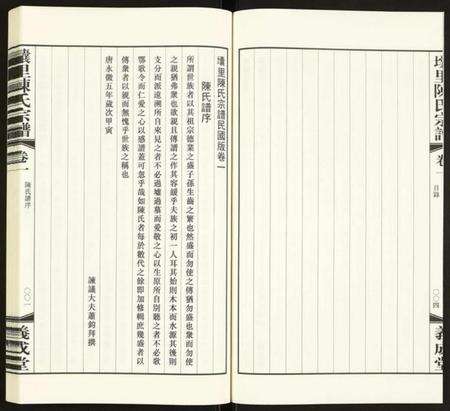 里陳氏宗譜
卷一
目錄
〇〇四
義成堂
里陳氏宗譜民國版卷一
陳氏譜序
所謂世族者以其祖宗德業之盛子孫生齒之繁也然盛而勿使之傳猶勿盛也衆而勿使
之親猶弗衆也欲親且傳譜之作其容緩乎夫族之初一人耳其始則木本而水源其後則
支分而派遠溯所自來見之者不必過墟過墓而愛敬之心以生原所自別聽之者不必歌
鄂歌令而仁愛之心以感譜蓋可忽乎哉如陳氏者每於數代之餘即加修輯庶幾盛者以
傳衆者以親而無愧乎世族之稱也
諫議大夫蕭鈞拜撰
唐永徽五年歲次甲寅
里陳氏宗譜
卷一
陳氏譜序
〇〇一
義成堂